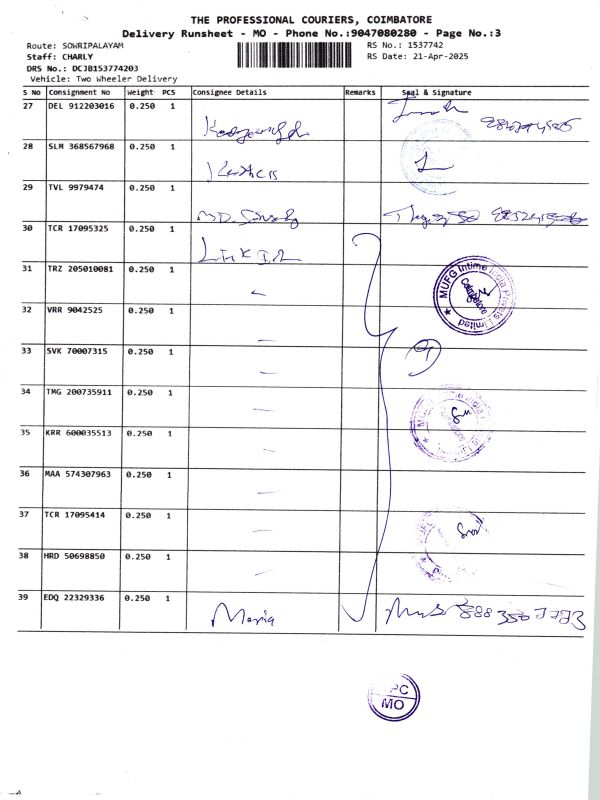 THE PROFESSIONAL COURIERS, COIMBATORE
Delivery Runsheet - MO - Phone No.:9047080280 - Page No.:3
Route: SOWRIPALAYAM RS No.: 1537742
Staff: CHARLY RS Date: 21-Apr-2025
DRS No.: DCJB153774203
Vehicle: Two Wheeler Delivery
S No Consignment No Weight PCS Consignee Details Remarks Seal & Signature
27 DEL 912203016 0.250 1
28 SLM 368567968 0.250 1
29 TVL 9979474 0.250 1
30 TCR 17095325 0.250 1
31 TRZ 205010081 0.250 1
MUFG Intime India Private Limited
Coimbatore
32 VRR 9042525 0.250 1
33 SVK 70007315 0.250 1
34 TMG 200735911 0.250 1
35 KRR 600035513 0.250 1
36 MAA 574307963 0.250 1
37 TCR 17095414 0.250 1
38 HRD 50698850 0.250 1
39 EDQ 22329336 0.250 1 Maria
PC
MO